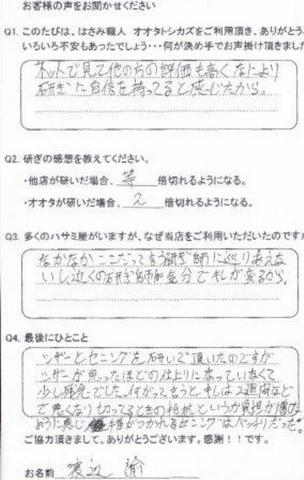 お客様の声をお聞かせください
Q1. このたびは、はさみ職人 オオタトシカズをご利用頂き、ありがとう
いろいろ不安もあったでしょう・・・何が決め手でお声掛け頂きました
ネットで見て他の方の評価も高くなにより
研ぎに自信を持ってると感じたから。
Q2. 研ぎの感想を教えてください。
・他店が研いだ場合、 等 倍切れるようになる。
・オオタが研いだ場合、 2 倍切れるようになる。
Q3. 多くのハサミ屋がいますが、なぜ当店をご利用いただいたのですか
なかなかここだって言う研ぎ師に巡りあえな
いし近くの研ぎ師
Q4. 最後にひとこと
シザーとセニングを研いで頂いたのですが
シザーが思ったほどの仕上りになっていなくて
少し残念でした。 2週間ほど
で悪くなり切ってるときの
ように感じ セニングはバッチリだった。
ご協力頂きまして、ありがとうございます。感謝！！です。
お名前 渡辺 諭